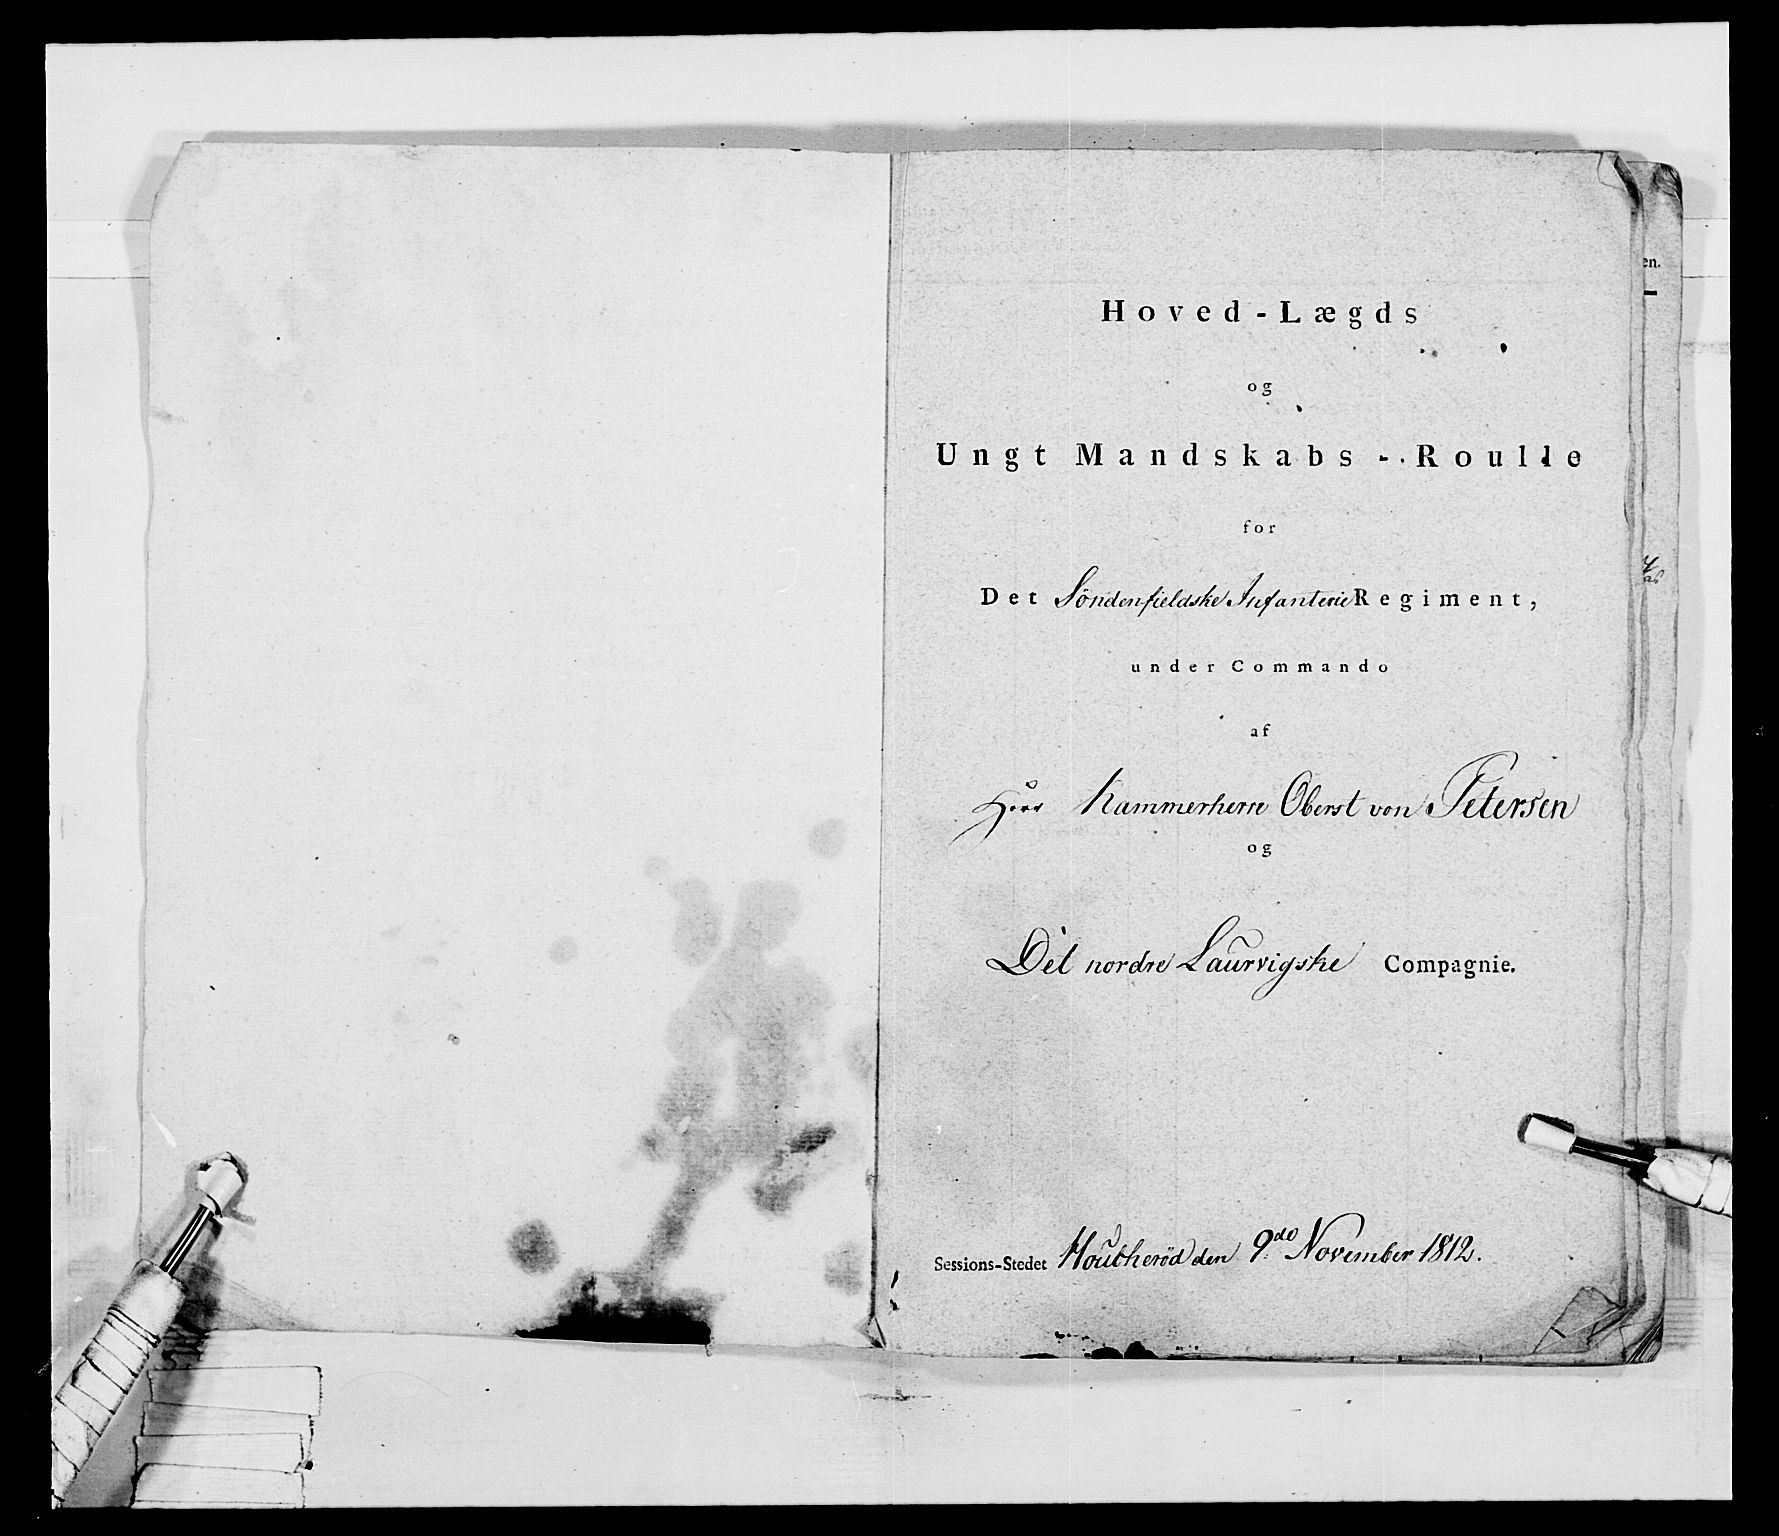 Hoved-Lægds
og
Ungt Mandskabs-Roulle
for
Det Söndenfieldske Infanterie Regiment,
under Commando
af
Herr Kammerherre Oberst von Petersen
og
Det nordre Laurvigske Compagnie.
Sessions-Stedet Houtheröd den 9do November 1812.
en.